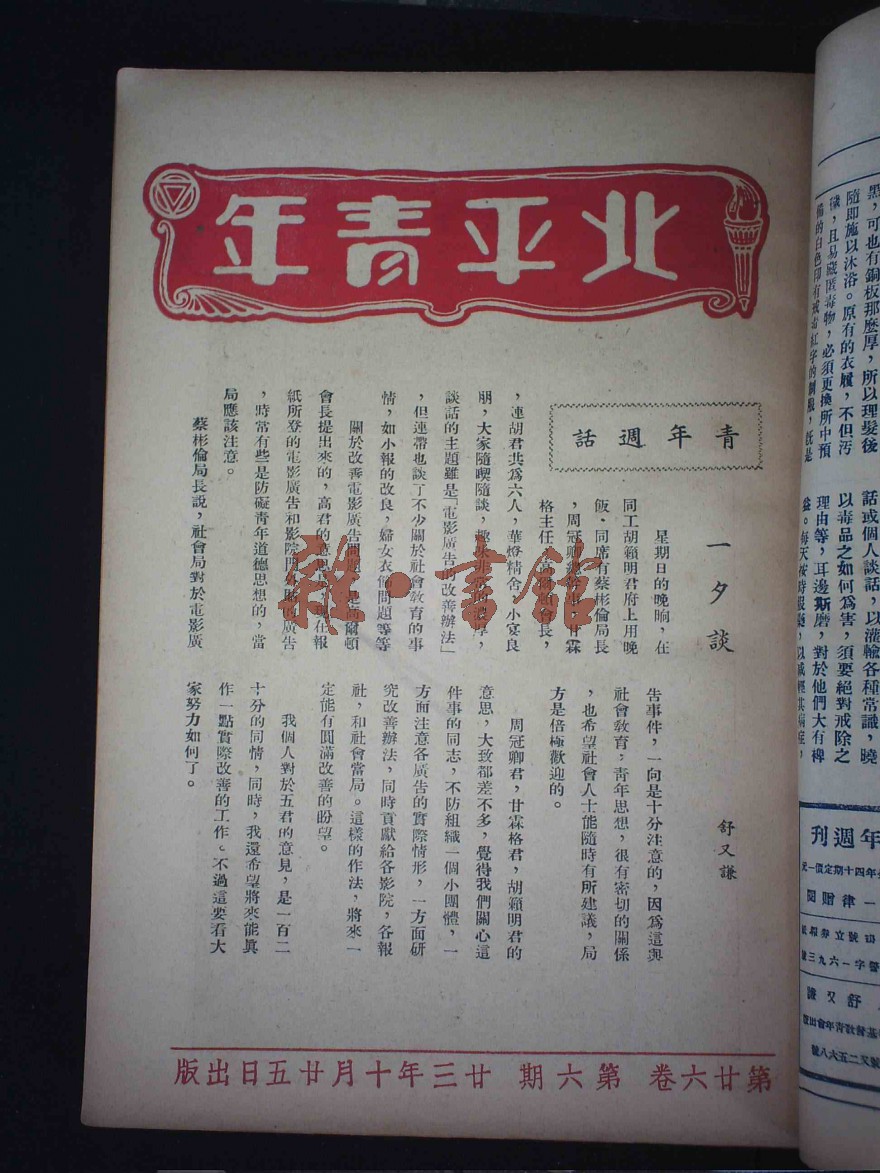 北平青年
青年週話
一夕談
舒又謙
星期日的晚晌，在
同工胡籟明君府上用晚
飯．同席有蔡彬倫局長
，周冠卿總幹事，甘霖
格主任，高
會長，
，連胡君共爲六人，華燈精舍，小宴良
朋，大家隨喫隨談，趣味非常的濃厚，
談話的主題雖是「電影廣告的改善辦法」
，但連帶也談了不少關於社會敎育的事
情，如小報的改良，婦女衣飾問題等等
關於改善電影廣告問題，是高爾頓
會長提出來的，高君的意思是，現在報
紙所登的電影廣告和影院門外貼的廣告
，時常有些是防礙靑年道德思想的，當
局應該注意。
蔡彬倫局長說，社會局對於電影廣
告事件，一向是十分注意的，因爲這與
社會敎育，靑年思想，很有密切的關係
，也希望社會人士能隨時有所建議，局
方是倍極歡迎的。
周冠卿君，甘霖格君，胡籟明君的
意思，大致都差不多，覺得我們關心這
件事的同志，不防組織一個小團體，一
方面注意各廣告的實際情形，一方面研
究改善辦法，同時貢獻給各影院，各報
社，和社會當局。這樣的作法，將來一
定能有圓滿改善的盼望。
我個人對於五君的意見，是一百二
十分的同情，同時，我還希望將來能眞
作一點實際改善的工作。不過這要看大
家努力如何了。
第廿六卷 第六期 廿三年十月廿五日出版
雜·書館
黑，可也有銅板那麼厚，所以理髮後
隨卽施以沐浴。原有的衣履，不但汚
穢，且易藏匿毒物，必須更換所中預
備的白色印有戒毒紅字的制服，旣是
話或個人談話，以灌輸各種常識，曉
以毒品之如何爲害，須要絕對戒除之
理由等，耳邊斯磨，對於他們大有裨
益。每天按時服藥，以減輕其痛症，
年週刊
年四十期定價一元
一律贈閱
號立券報紙
字一六九三號
舒又謙
基督敎靑年會出版
號又二五六八號